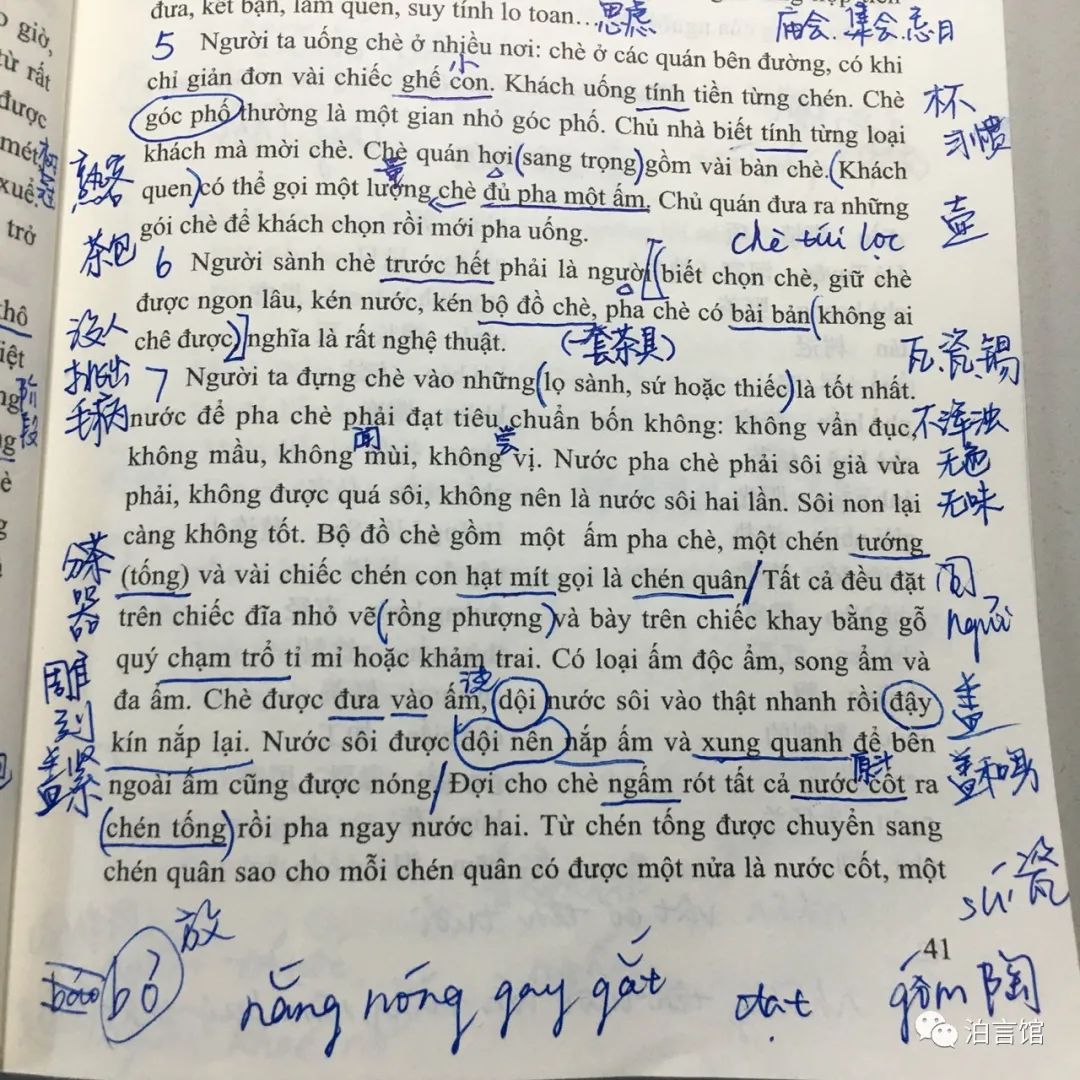 đưa, kết bạn, làm quen, suy tính lo toan...
思虑
庙会.集会.忌日
giờ,
từ rất
được
mét
xuể.
trở
thô
iệt
阶
段
5 Người ta uống chè ở nhiều nơi: chè ở các quán bên đường, có khi
小
chỉ giản đơn vài chiếc ghế con. Khách uống tính tiền từng chén. Chè
杯
góc phố thường là một gian nhỏ góc phố. Chủ nhà biết tính từng loại
习惯
khách mà mời chè. Chè quán hơi (sang trọng) gồm vài bàn chè. (Khách
熟客
量
quen) có thể gọi một lượng chè đủ pha một ấm. Chủ quán đưa ra những
壶
gói chè để khách chọn rồi mới pha uống.
chè túi lọc
茶包
6 Người sành chè trước hết phải là người [(biết chọn chè, giữ chè
được ngon lâu, kén nước, kén bộ đồ chè, pha chè có bài bản (không ai
chê được)] nghĩa là rất nghệ thuật.
(一套茶具)
没人
挑出
毛病
瓦.瓷.锡
7 Người ta đựng chè vào những (lọ sành, sứ hoặc thiếc) là tốt nhất.
nước để pha chè phải đạt tiêu chuẩn bốn không: không vẩn đục,
不浑浊
闻
尝
không mầu, không mùi, không vị. Nước pha chè phải sôi già vừa
无色
phải, không được quá sôi, không nên là nước sôi hai lần. Sôi non lại
无味
càng không tốt. Bộ đồ chè gồm một ấm pha chè, một chén tướng
分茶
器
(tống) và vài chiếc chén con hạt mít gọi là chén quân/ Tất cả đều đặt
闻
trên chiếc đĩa nhỏ vẽ (rồng phượng) và bày trên chiếc khay bằng gỗ
ngửi
quý chạm trổ tỉ mỉ hoặc khảm trai. Có loại ấm độc ẩm, song ẩm và
雕
刻
浇
đa ẩm. Chè được đưa vào ấm, dội nước sôi vào thật nhanh rồi đậy
盖
kín nắp lại. Nước sôi được dội nên nắp ấm và xung quanh để bên
盖紧
原汁
ngoài ấm cũng được nóng/ Đợi cho chè ngấm rót tất cả nước cốt ra
(chén tống) rồi pha ngay nước hai. Từ chén tống được chuyển sang
chén quân sao cho mỗi chén quân có được một nửa là nước cốt, một
sứ 瓷
41
放
bỏ
nắng nóng gay gắt
đạt
gốm 陶
泊言馆